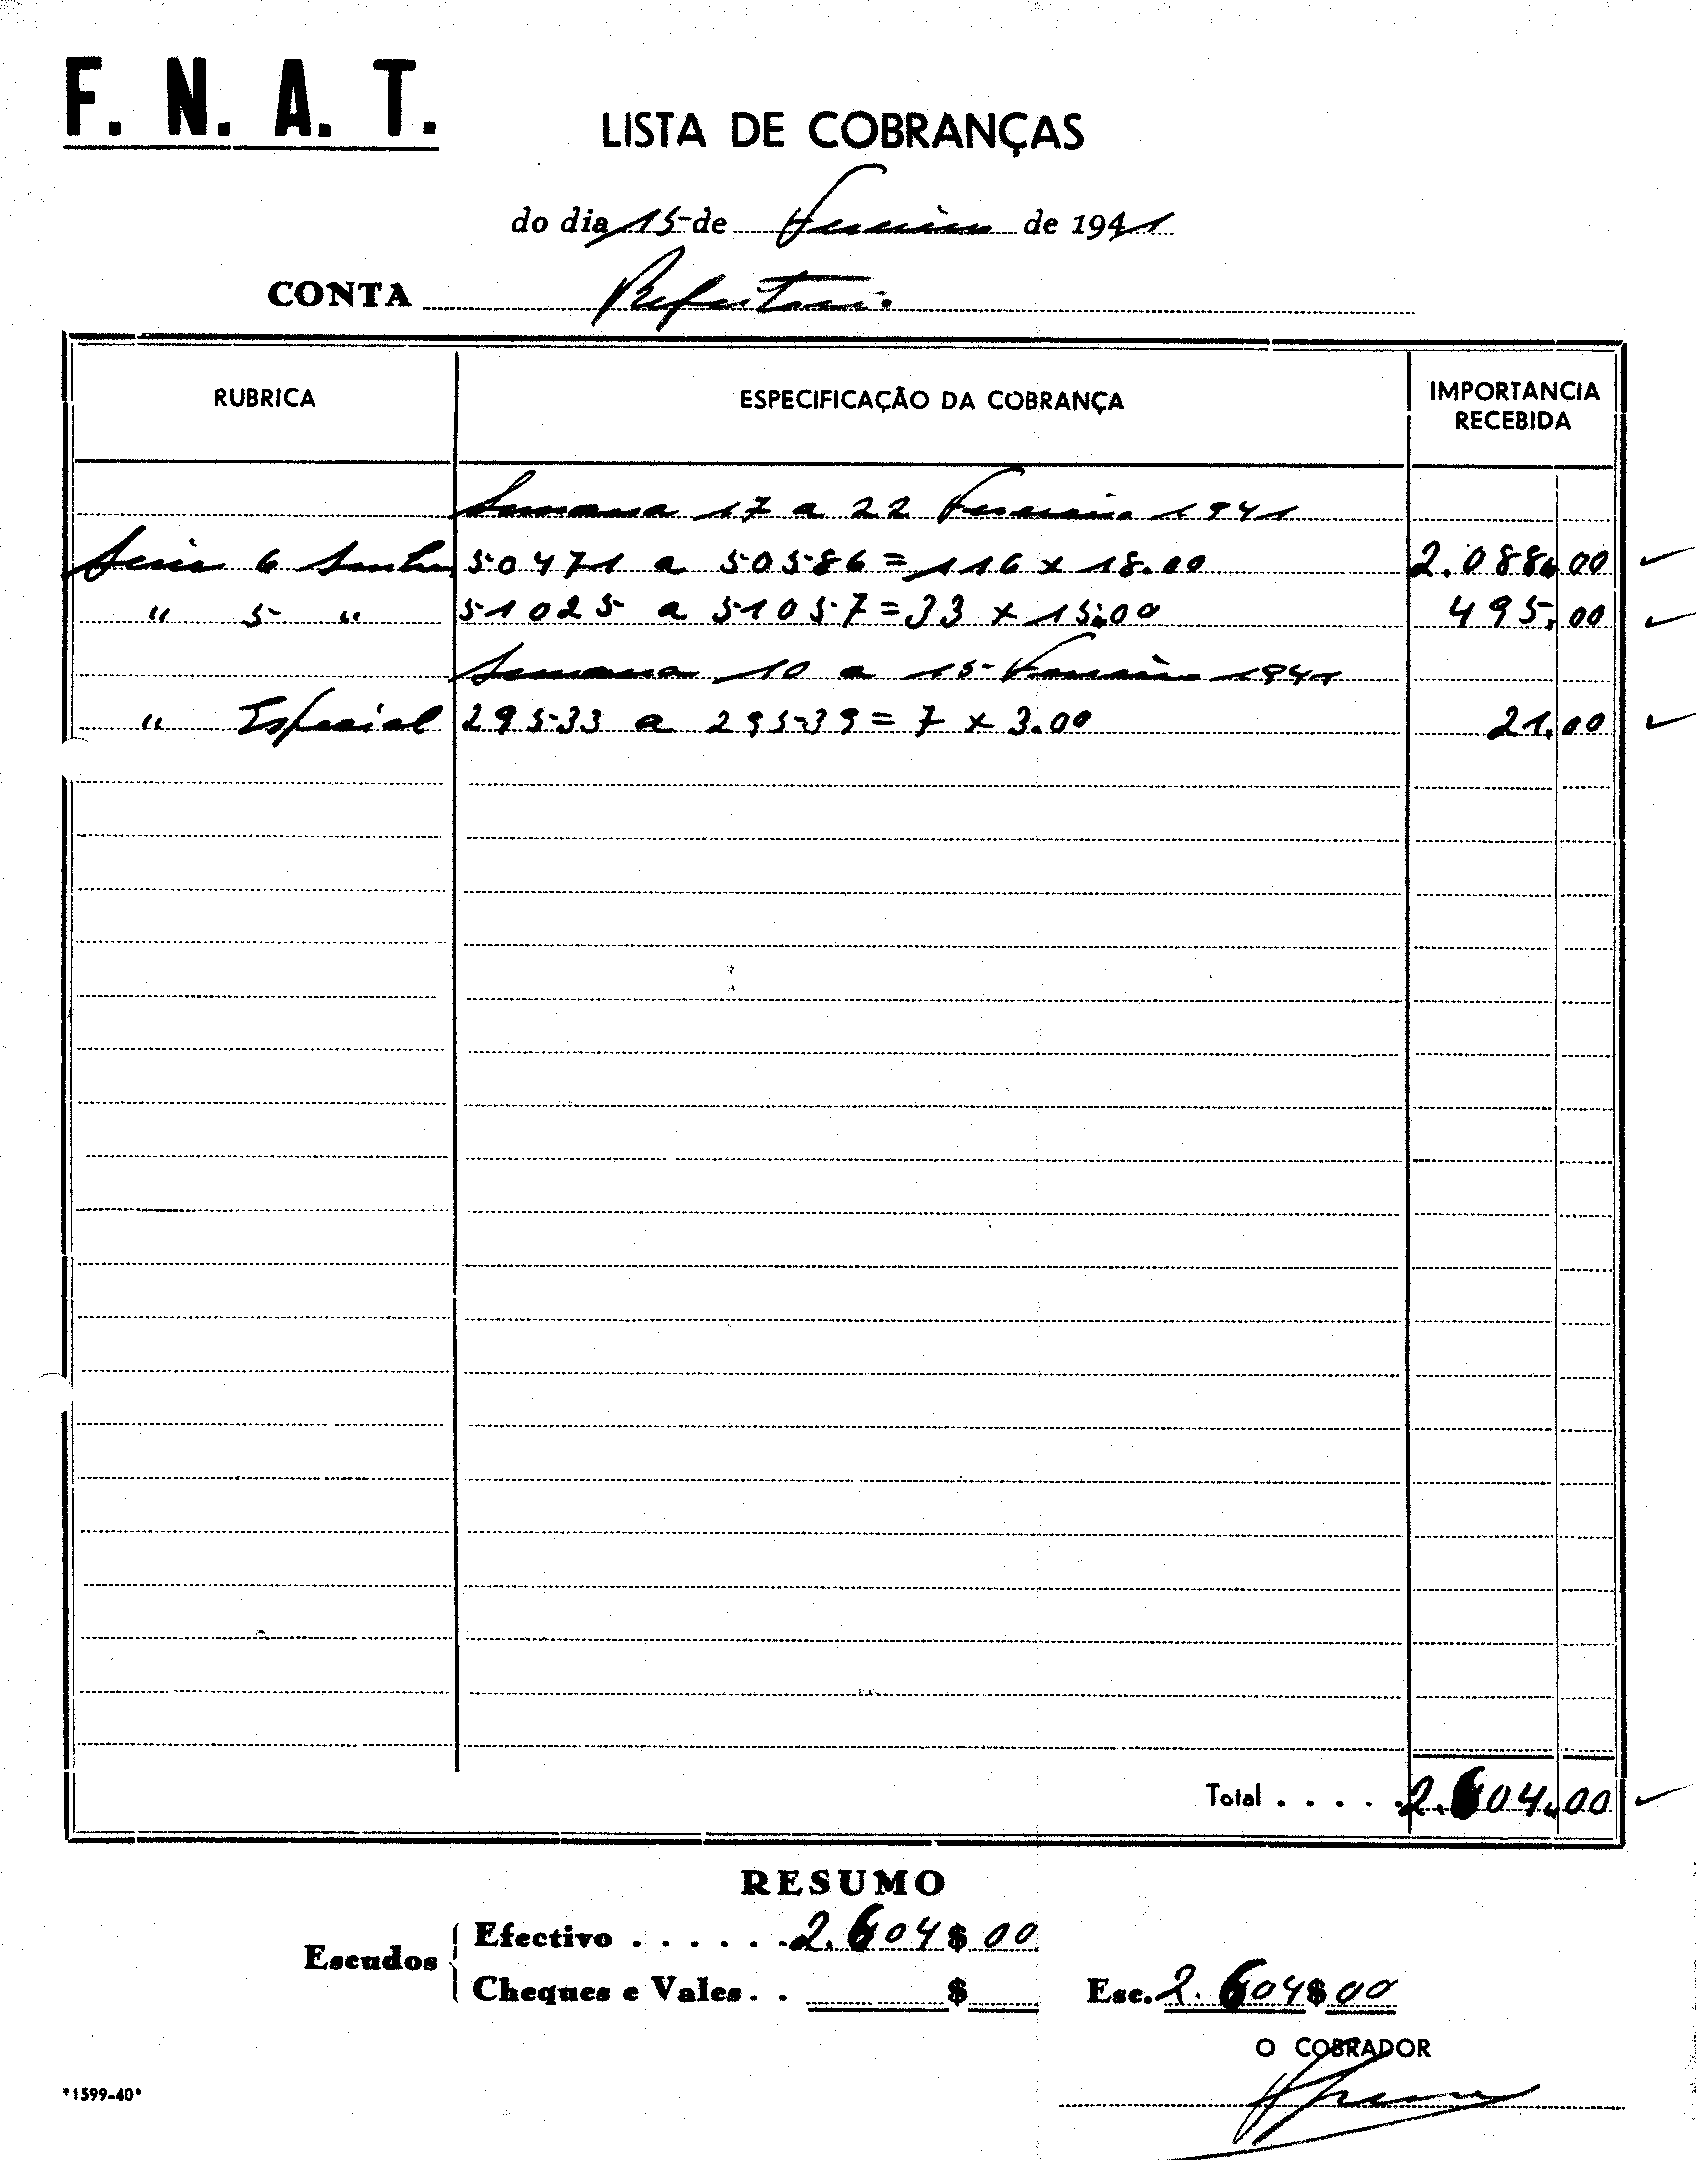 F. N. A. T.
LISTA DE COBRANÇAS
do dia 15 de Fevereiro de 1941
CONTA Refeitorio
RUBRICA ESPECIFICAÇÃO DA COBRANÇA IMPORTANCIA RECEBIDA
Semana 17 a 22 Fevereiro 1941
Serie 6 Senhas 50471 a 50586 = 116 x 18.00 2.088.00
" 5 " 51025 a 51057 = 33 x 15.00 495.00
Semana 10 a 15 Fevereiro 1941
" Especial 29533 a 29539 = 7 x 3.00 21.00
Total . . . . . 2.604.00
RESUMO
Escudos
Efectivo . . . . . . 2.604$00
Cheques e Vales . . $
Esc. 2.604$00
O COBRADOR
*1599-40*